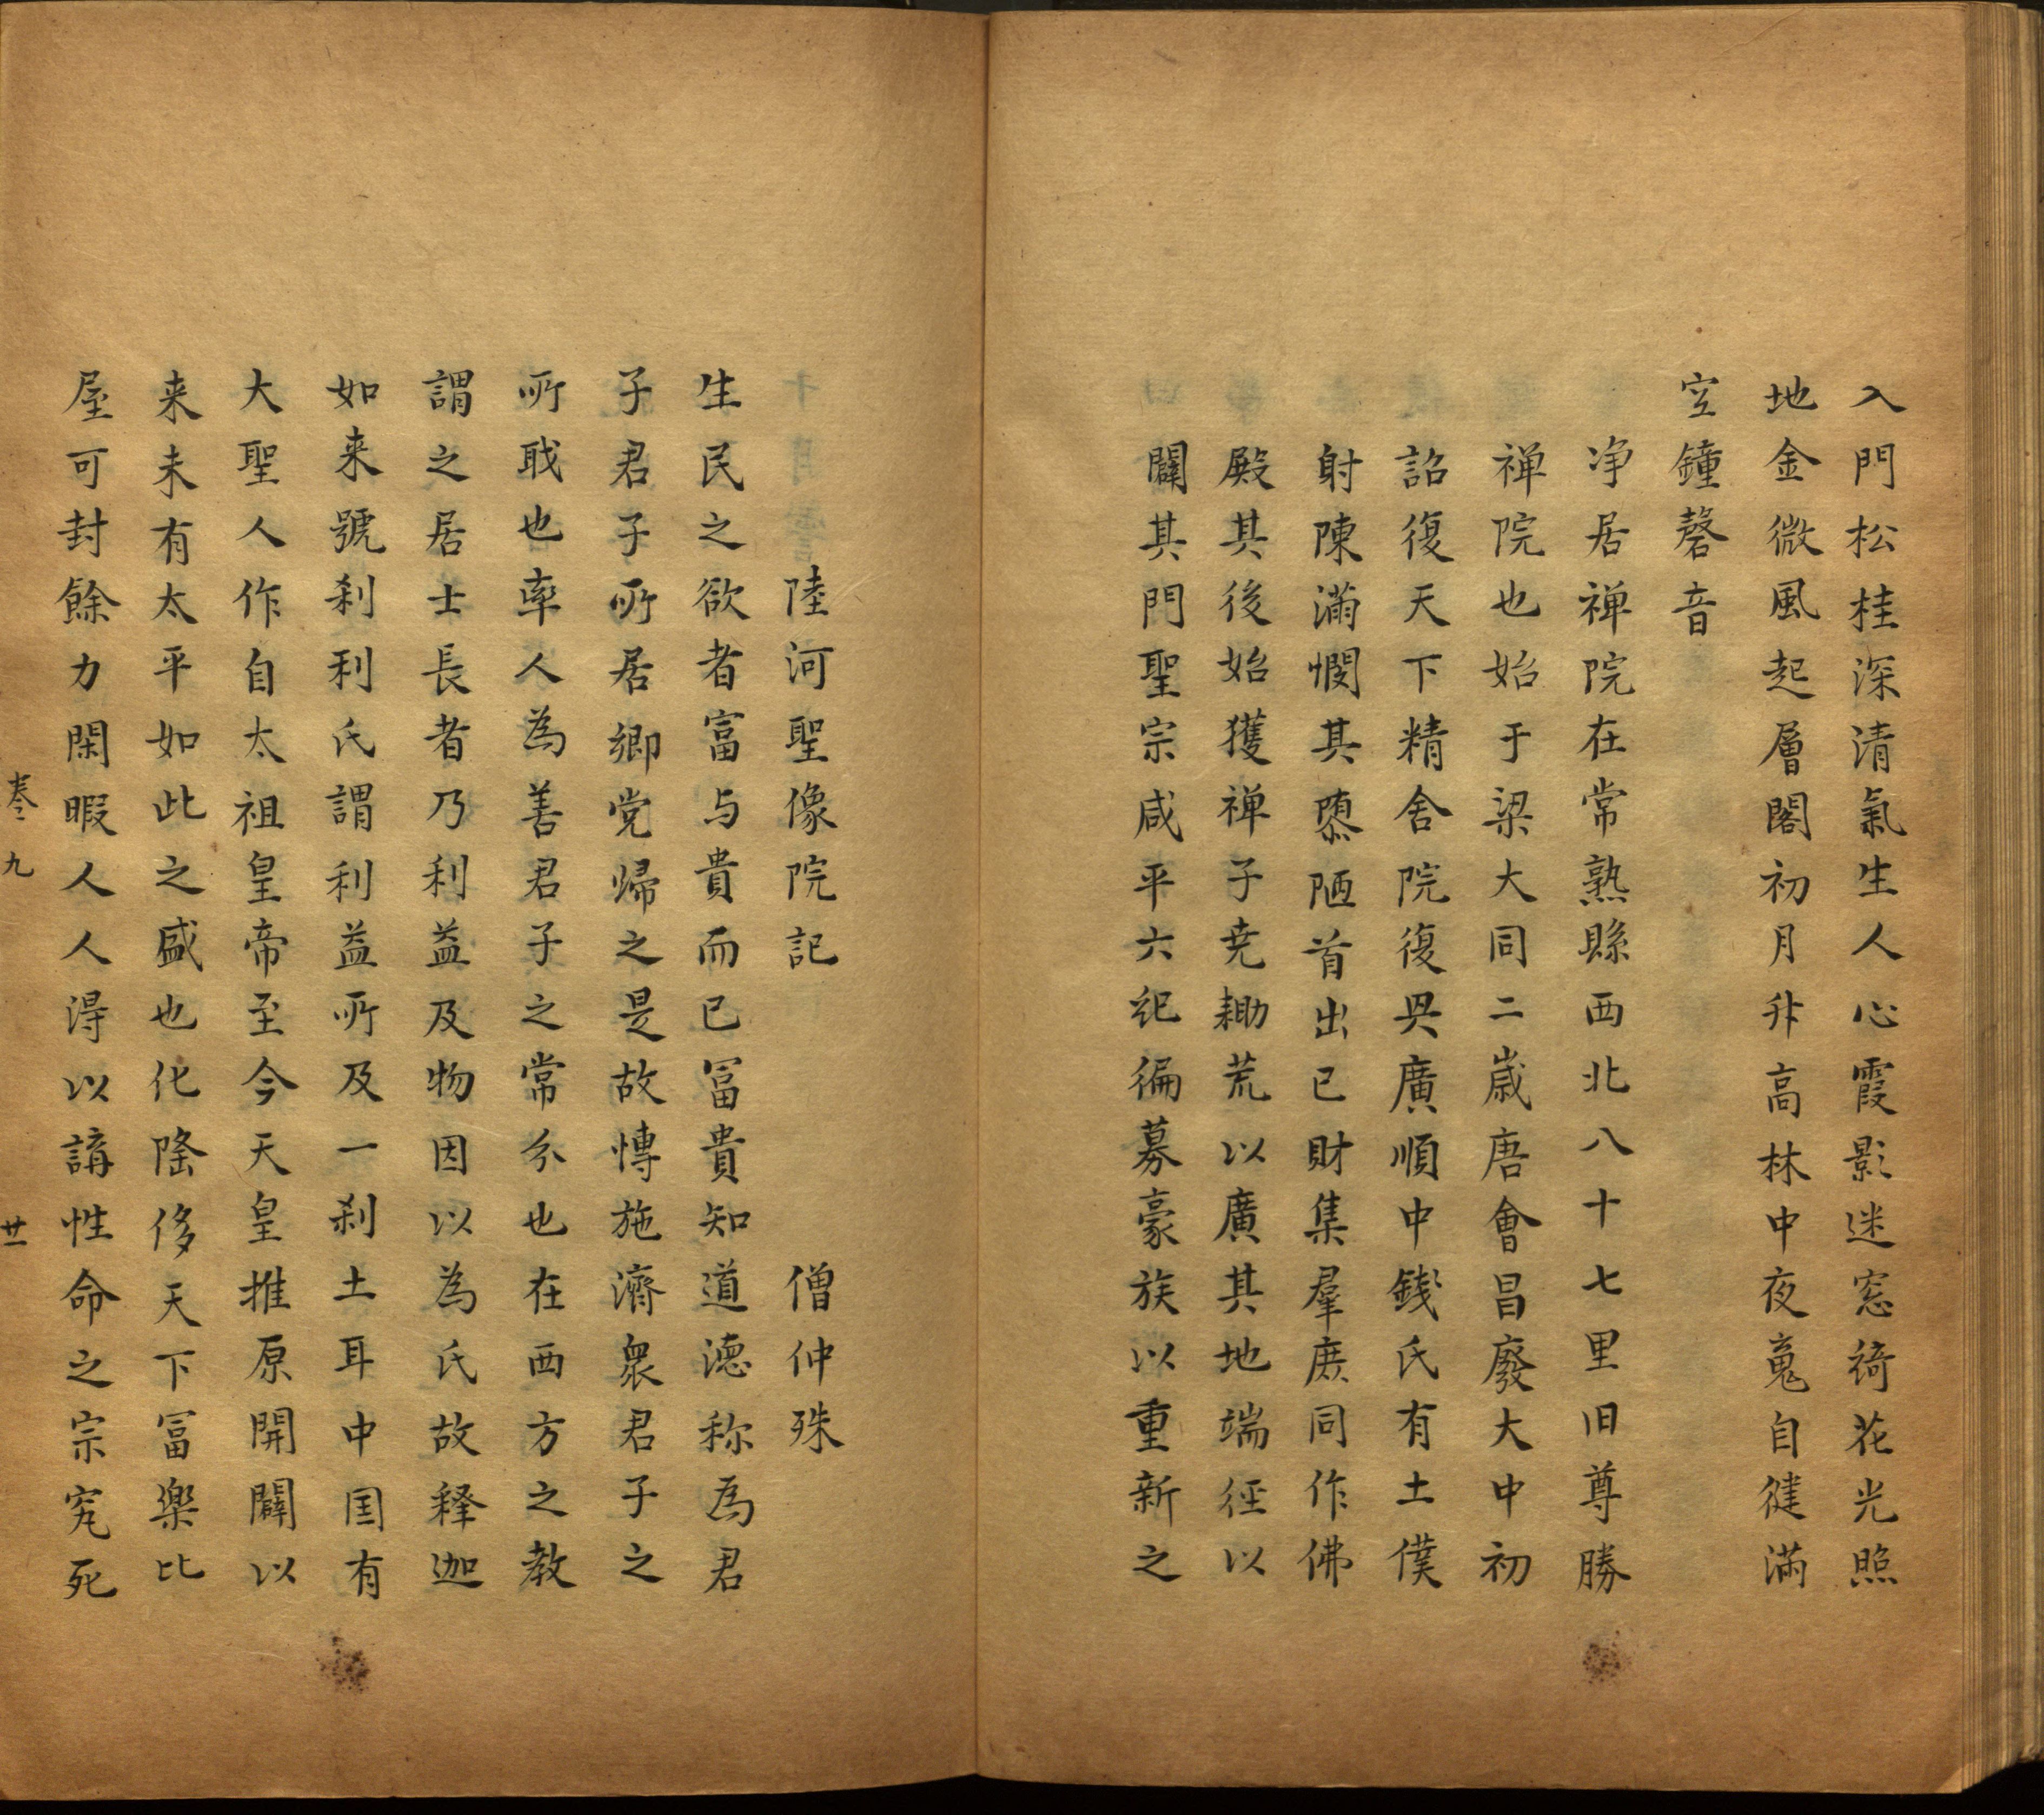 入門松桂深清氣生人心霞影迷窓綺花光照
地金微風起層閣初月升高林中夜蒐自健滿
空鐘磬音
净居禅院在常熟縣西北八十七里旧尊勝
禅院也始于梁大同二歳唐會昌廢大中初
詔復天下精舍院復興廣順中錢氏有土僕
射陳滿憫其隳陋首出已財集羣庶同作佛
殿其後始獲禅子尭耡荒以廣其地端徑以
闢其門聖宗咸平六䄵徧募豪族以重新之
陸河聖像院記　僧仲殊
生民之欲者富与貴而已冨貴知道德称為君
子君子所居鄉党歸之是故慱施濟衆君子之
所戢也率人為善君子之常分也在西方之教
謂之居士長者乃利益及物因以為氏故释迦
如来號刹利氏謂利益所及一刹土耳中国有
大聖人作自太祖皇帝至今天皇推原開闢以
来未有太平如此之盛也化隆侈天下冨樂比
屋可封餘力閑暇人人得以講性命之宗究死
卷九
廿一